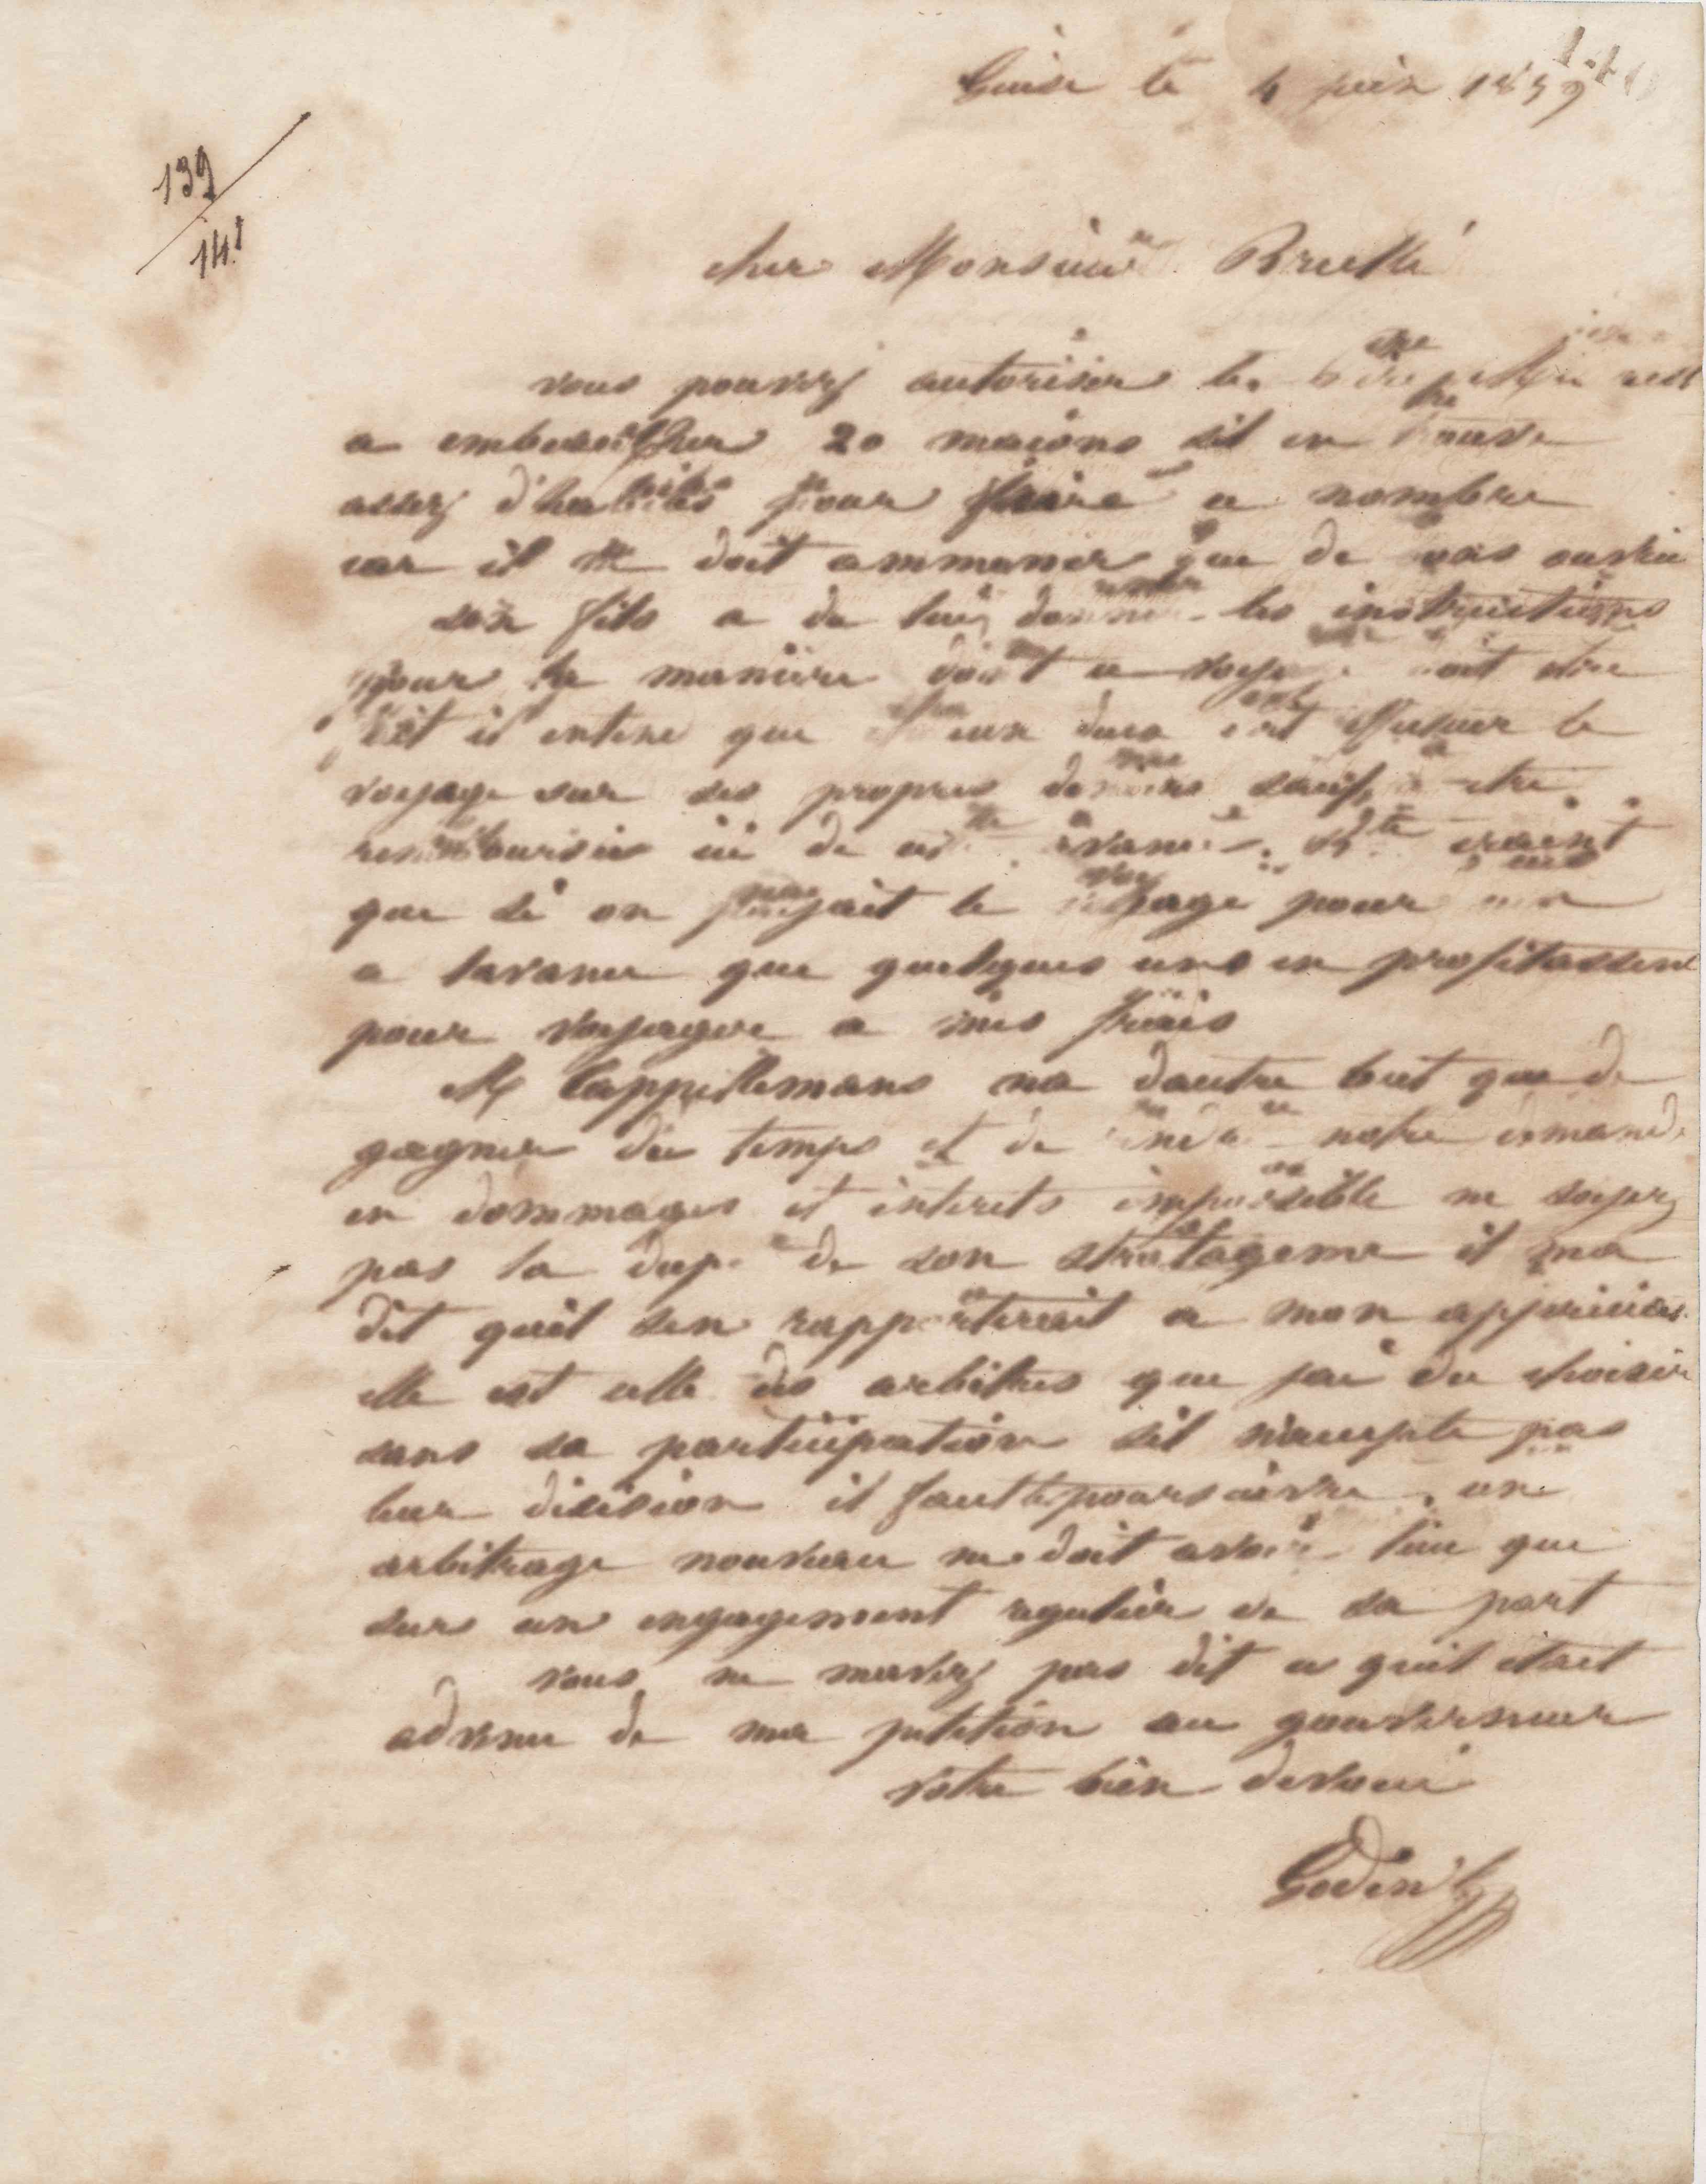 140
Guise le 4 juin 1859
139
141
cher Monsieur Brullé
vous pouvez autoriser le
a embaucher 20 maçons sil en trouve
assez d'habiles pour faire ce nombre
car il ne doit ammener que de vrais ouvriers
son fils a du lui donner les instructions
pour la manière dont ce voyage doit être
fait il entend que chacun deux doit effectuer le
voyage sur ses propres deniers sauf a etre
remboursés ici de ces avances. craint
que si on payait le voyage pour eux
a lavance que quelques uns en profitassent
pour voyager a mes frais
M Cappellemans na dautre but que de
gagner du temps et de rendre notre demande
en dommages et interets impossible ne soyez
pas la dupe de son stratageme il ma
dit quil sen rapporterait a mon
elle est celle des arbitres que jai du choisir
sans sa participation sil naccepte pas
leur décision il faut le poursuivre, un
arbitrage nouveau ne doit avoir lieu que
sur un engagement regulier de sa part
vous ne mavez pas dit ce quil etait
advenu de ma petition au gouverneur
votre bien devoué
Godin